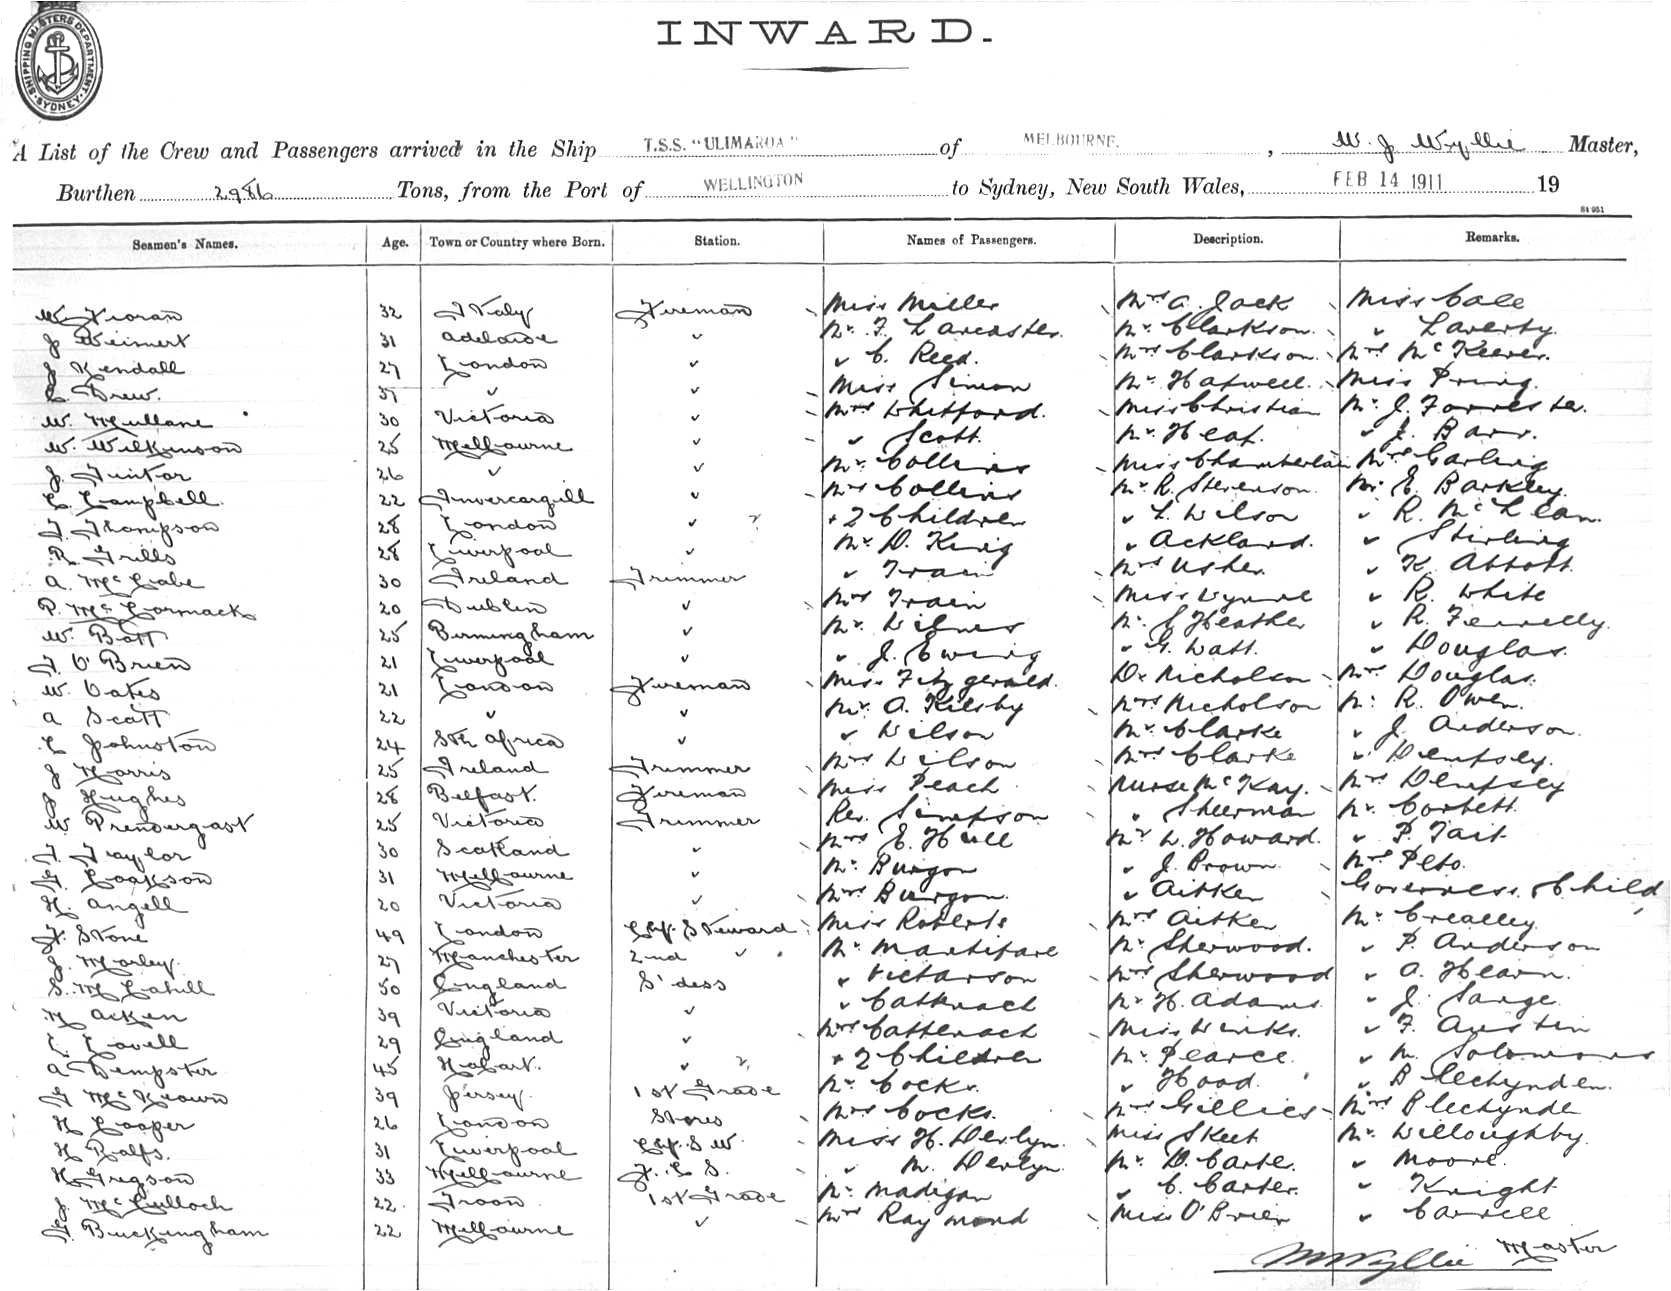 SHIPPING MASTERS DEPARTMENT SYDNEY
INWARD.
A List of the Crew and Passengers arrived in the Ship T.S.S. "ULIMAROA" of MELBOURNE. , W. J. Wyllie Master,
Burthen Tons, from the Port of WELLINGTON to Sydney, New South Wales, FEB 14 1911 19
Seamen's Names. Age. Town or Country where Born. Station. Names of Passengers. Description. Remarks.
32 Italy Fireman Miss Miller Mrs A. Jack Miss Cale
J Weimert 31 Adelaide " Mr. F. Lancaster. Mr. Clarkson. " Laverty.
J Kendall 27 London " " C. Reed. Mrs Clarkson. Mrs McKeever.
Drew. " " Miss Simon Mr. Miss Pring.
W. Mullane 30 Victoria " Mrs Whitford. Miss Christian Mr. J. Forrester.
W. Wilkinson 25 Melbourne " " Scott. Mr. Heaf. " J. Barr.
J. 26 " " Mr. Collins Miss Chamberlain Mrs Garling
C. Campbell. 22 Invercargill " Mrs Collins Mr. R. Stevenson. Mr. E. Barkley.
T. Thompson 28 London " + 2 Children " L. Wilson " R. McLean.
R. Grills 28 Liverpool " Mr. D. King " Ackland. " Stirling
A. McCabe 30 Ireland Trimmer " Train Mrs Usher. " K. Abbott.
P. McCormack 20 Dublin " Mrs Train Miss Wynne " R. White
W. Batt 25 Birmingham " Mr. Wilmes Mr. Heather " R. Fennelly.
T. O'Brien 21 Liverpool " " J. Ewing " G. Watt. " Douglas.
W. Oates 21 London Fireman Miss Fitzgerald. Dr. Nicholson Mrs Douglas.
A Scott 22 " " Mr. A. Kilsby Mrs Nicholson Mr. R. Owen.
C Johnston 24 Sth Africa " " Wilson Mr. Clarke " J. Anderson.
J Harris 25 Ireland Trimmer Mrs Wilson Mrs Clarke " Dempsey.
J Hughes 28 Belfast. Fireman Miss Peach Nurse McKay. Mrs Dempsey
W Prendergast 25 Victoria Trimmer Rev. Simpson " Sheerman Mr. Corbett.
T. Taylor 30 Scotland " Mrs E. Hull Mr. W. Howard. " P. Tait
G. Cookson 31 Melbourne " Mr. Burgon " J. Brown. Mrs Peto.
H. Angell 20 Victoria " Mrs Burgon. " Aitken Governess & Child
F. Stone 49 London Chf. Steward Miss Roberts Mrs Aitken Mr. Crealley
J. Morley. 27 Manchester 2nd " Mr. Mr. Sherwood. " P. Anderson
S. McCahill 50 England S'dess " Victorson Mrs Sherwood " A. Hearn.
M Acken 39 Victoria " " Cattenach Mr. H. Adams. " J. Sarge.
C. Lovell 29 England " Mrs Cattenach Miss Winks. " F. Austin
A Dempster 45 Hobart. " + 2 Children Mr. Pearce. " M. Solomons
G McKeown 39 Jersey. 1st Grade Mr. Cocks. " Hood. " Blechynden.
H Cooper 26 London Stores Mrs Cocks. Mrs Gillies Mrs Blechynden
H Ralfs. 31 Liverpool Chf. S.W. Miss H. Derlyn. Miss Skeet Mr. Willoughby.
H Gregson 33 Melbourne F. C. S. " M. Derlyn. Mr. D. Carter. " Moore.
J. McCulloch 22. Troon. 1st Grade Mr. Madigan " C. Carter. " Knight
G. Buckingham 22 Melbourne " Mrs Raymond Miss O'Brien " Carrell
Wyllie Master